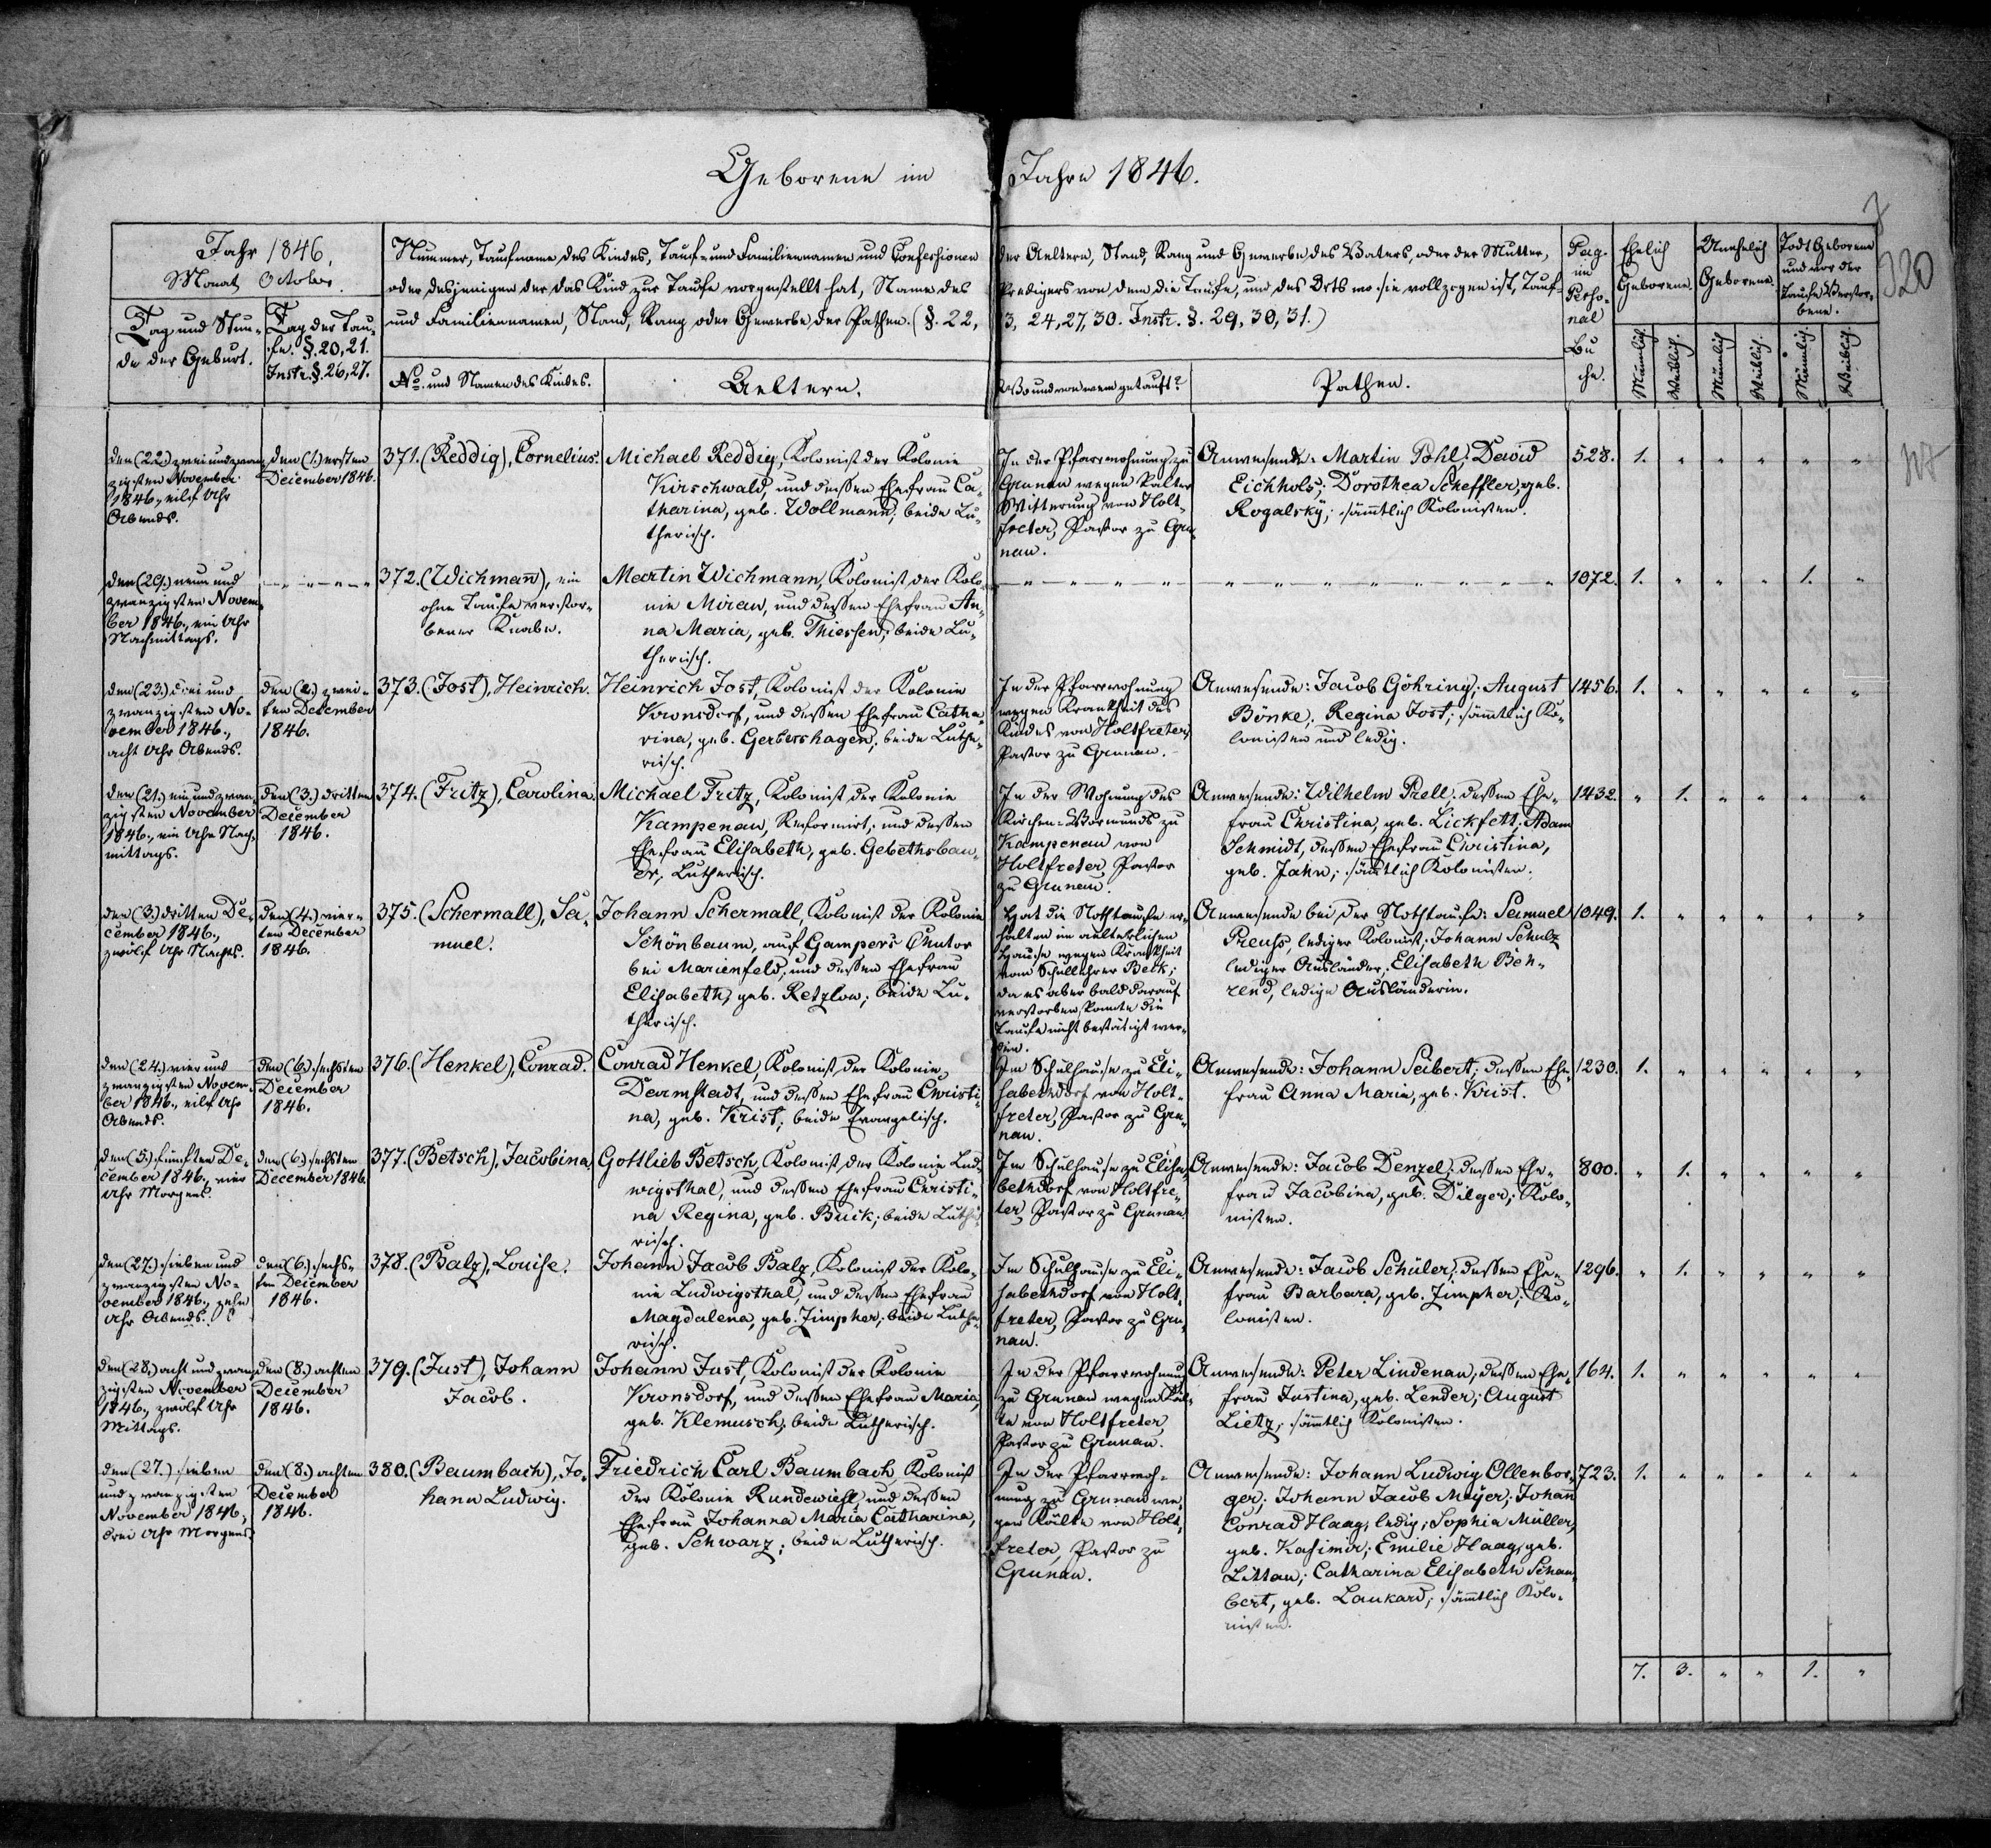 Geborene im Jahre 1846.
320
Jahr 1846.
Monat October.
Tag und Stun-
de der Geburt.
Tag der Tau-
fe. §. 20, 21.
Instr. §. 26, 27.
Nummer, Taufname des Kindes, Tauf- und Familiennamen und Confessionen
oder desjenigen der das Kind zur Taufe vorgestellt hat, Name des
und Familiennamen, Stand, Rang oder Gewerbe der Pathen. (§. 22,
No. und Namen des Kindes.
Aeltern.
der Aeltern, Stand, Rang und Gewerbe des Vaters, oder der Mutter,
Predigers von dem die Taufe, und des Orts wo sie vollzogen ist, Tauf-
23, 24, 27, 30. Instr. §. 29, 30, 31.)
Wo und von wem getauft?
Pathen.
Pag.
im
Perso-
nal
Bu
che.
Ehelich
Geborene.
Unehelich
Geborene.
Todt Geborene
und vor der
Taufe Verstor-
bene.
Männlich.
Weiblich.
Männlich.
Weiblich.
Männlich.
Weiblich.
den (22.) zwei und zwan-
zigsten November
1846., eilf Uhr
Abends.
den (1.) ersten
December 1846.
371. (Reddig), Cornelius.
Michael Reddig, Kolonist der Kolonie
Kirschwald, und dessen Ehefrau Ca-
tharina, geb. Wollmann; beide Lu-
therisch.
In der Pfarrwohnung zu
Grunau wegen kalter
Witterung von Holt-
freter, Pastor zu Gru-
nau.
Anwesende: Martin Pohl; David
Eichholz; Dorothea Scheffler, geb.
Rogalsky; sämmtlich Kolonisten.
528. 1. " " " " "
den (29.) neun und
zwanzigsten Novem-
ber 1846., ein Uhr
Nachmittags.
372. (Wichmann), ein
ohne Taufe verstor-
bener Knabe.
Martin Wichmann, Kolonist der Kolo-
nie Mirau, und dessen Ehefrau An-
na Maria, geb. Thiessen; beide Lu-
therisch.
1072. 1. " " " 1. "
den (23.) drei und
zwanzigsten No-
vember 1846.,
acht Uhr Abends.
den (2.) zwei-
ten December
1846.
373. (Jost), Heinrich.
Heinrich Jost, Kolonist der Kolonie
Kronsdorf, und dessen Ehefrau Catha-
rina, geb. Gerbershagen; beide Luthe-
risch.
In der Pfarrwohnung
wegen Krankheit des
Kindes von Holtfreter,
Pastor zu Grunau.
Anwesende: Jacob Göhring; August
Bönke; Regina Jost; sämmtlich Ko-
lonisten und ledig.
1456. 1. " " " " "
den (21.) ein und zwan-
zigsten November
1846., ein Uhr Nach-
mittags.
den (3.) dritten
December
1846.
374. (Fritz), Carolina.
Michael Fritz, Kolonist der Kolonie
Kampenau, Reformirt, und dessen
Ehefrau Elisabeth, geb. Gebethsbau-
er; Lutherisch.
In der Wohnung des
Kirchen-Vormunds zu
Kampenau von
Holtfreter, Pastor
zu Grunau.
Anwesende: Wilhelm Prell; dessen Ehe-
frau Christina, geb. Lickfett; Adam
Schmidt, dessen Ehefrau Christina,
geb. Jahn; sämmtlich Kolonisten.
1432. " 1. " " " "
den (3.) dritten De-
cember 1846.,
zwölf Uhr Nachts.
den (4.) vier-
ten December
1846.
375. (Schermall), Sa-
muel.
Johann Schermall, Kolonist der Kolonie
Schönbaum, auf Gamper's Chutor
bei Marienfeld, und dessen Ehefrau
Elisabeth, geb. Retzlow; beide Lu-
therisch.
Hat die Nothtaufe er-
halten im aelterlichen
Hause wegen Krankheit
vom Schullehrer Beck;
da es aber bald darauf
verstorben konnte die
Taufe nicht bestätigt wer-
den.
Anwesende bei der Nothtaufe: Samuel
Preuss, lediger Kolonist; Johann Schulz
lediger Ausländer; Elisabeth Beh-
rend, ledige Ausländerin.
1049. 1. " " " " "
den (24.) vier und
zwanzigsten Novem-
ber 1846., eilf Uhr
Abends.
den (6.) sechsten
December
1846.
376. (Henkel), Conrad.
Conrad Henkel, Kolonist der Kolonie
Darmstadt, und dessen Ehefrau Christi-
na, geb. Krist; beide Evangelisch.
Im Schulhause zu Eli-
sabethdorf von Holt-
freter, Pastor zu Gru-
nau.
Anwesende: Johann Seibert; dessen Ehe-
frau Anna Maria, geb. Krist.
1230. 1. " " " " "
den (5.) fünften De-
cember 1846., vier
Uhr Morgens.
den (6.) sechsten
December 1846.
377. (Betsch), Jacobina.
Gottlieb Betsch, Kolonist der Kolonie Lud-
wigsthal, und dessen Ehefrau Christi-
na Regina, geb. Buck; beide Luthe-
risch.
Im Schulhause zu Elisa-
bethdorf von Holtfre-
ter, Pastor zu Grunau.
Anwesende: Jacob Denzel; dessen Ehe-
frau Jacobina, geb. Dilger; Kolo-
nisten.
800. " 1. " " " "
den (27.) sieben und
zwanzigsten No-
vember 1846., zehn
Uhr Abends.
den (6.) sechs-
ten December
1846.
378. (Balz), Louise.
Johann Jacob Balz, Kolonist der Kolo-
nie Ludwigsthal, und dessen Ehefrau
Magdalena, geb. Zimpher; beide Luthe-
risch.
Im Schulhause zu Eli-
sabethdorf von Holt-
freter, Pastor zu Gru-
nau.
Anwesende: Jacob Schüler; dessen Ehe-
frau Barbara, geb. Zimpher; Ko-
lonisten.
1296. " 1. " " " "
den (28.) acht und zwan-
zigsten November
1846., zwölf Uhr
Mittags.
den (8.) achten
December
1846.
379. (Just), Johann
Jacob.
Johann Just, Kolonist der Kolonie
Kronsdorf, und dessen Ehefrau Maria,
geb. Klemusch; beide Lutherisch.
In der Pfarrwohnung
zu Grunau wegen Käl-
te von Holtfreter,
Pastor zu Grunau.
Anwesende: Peter Lindenau, dessen Ehe-
frau Justina, geb. Lender; August
Lietz; sämmtlich Kolonisten.
164. 1. " " " " "
den (27.) sieben
und zwanzigsten
November 1846,
drei Uhr Morgens.
den (8.) achten
December
1846.
380. (Baumbach), Jo-
hann Ludwig.
Friedrich Carl Baumbach, Kolonist
der Kolonie Rundewiese, und dessen
Ehefrau Johanna Maria Catharina,
geb. Schwarz; beide Lutherisch.
In der Pfarrwoh-
nung zu Grunau we-
gen Kälte von Holt-
freter, Pastor zu
Grunau.
Anwesende: Johann Ludwig Ollenbor-
ger; Johann Jacob Meyer; Johann
Conrad Haag, ledig; Sophia Müller,
geb. Kasimir; Emilie Haag, geb.
Littau; Catharina Elisabeth Schau-
bert, geb. Laukard; sämmtlich Kolo-
nisten.
723. 1. " " " " "
7. 3. " " 1. "